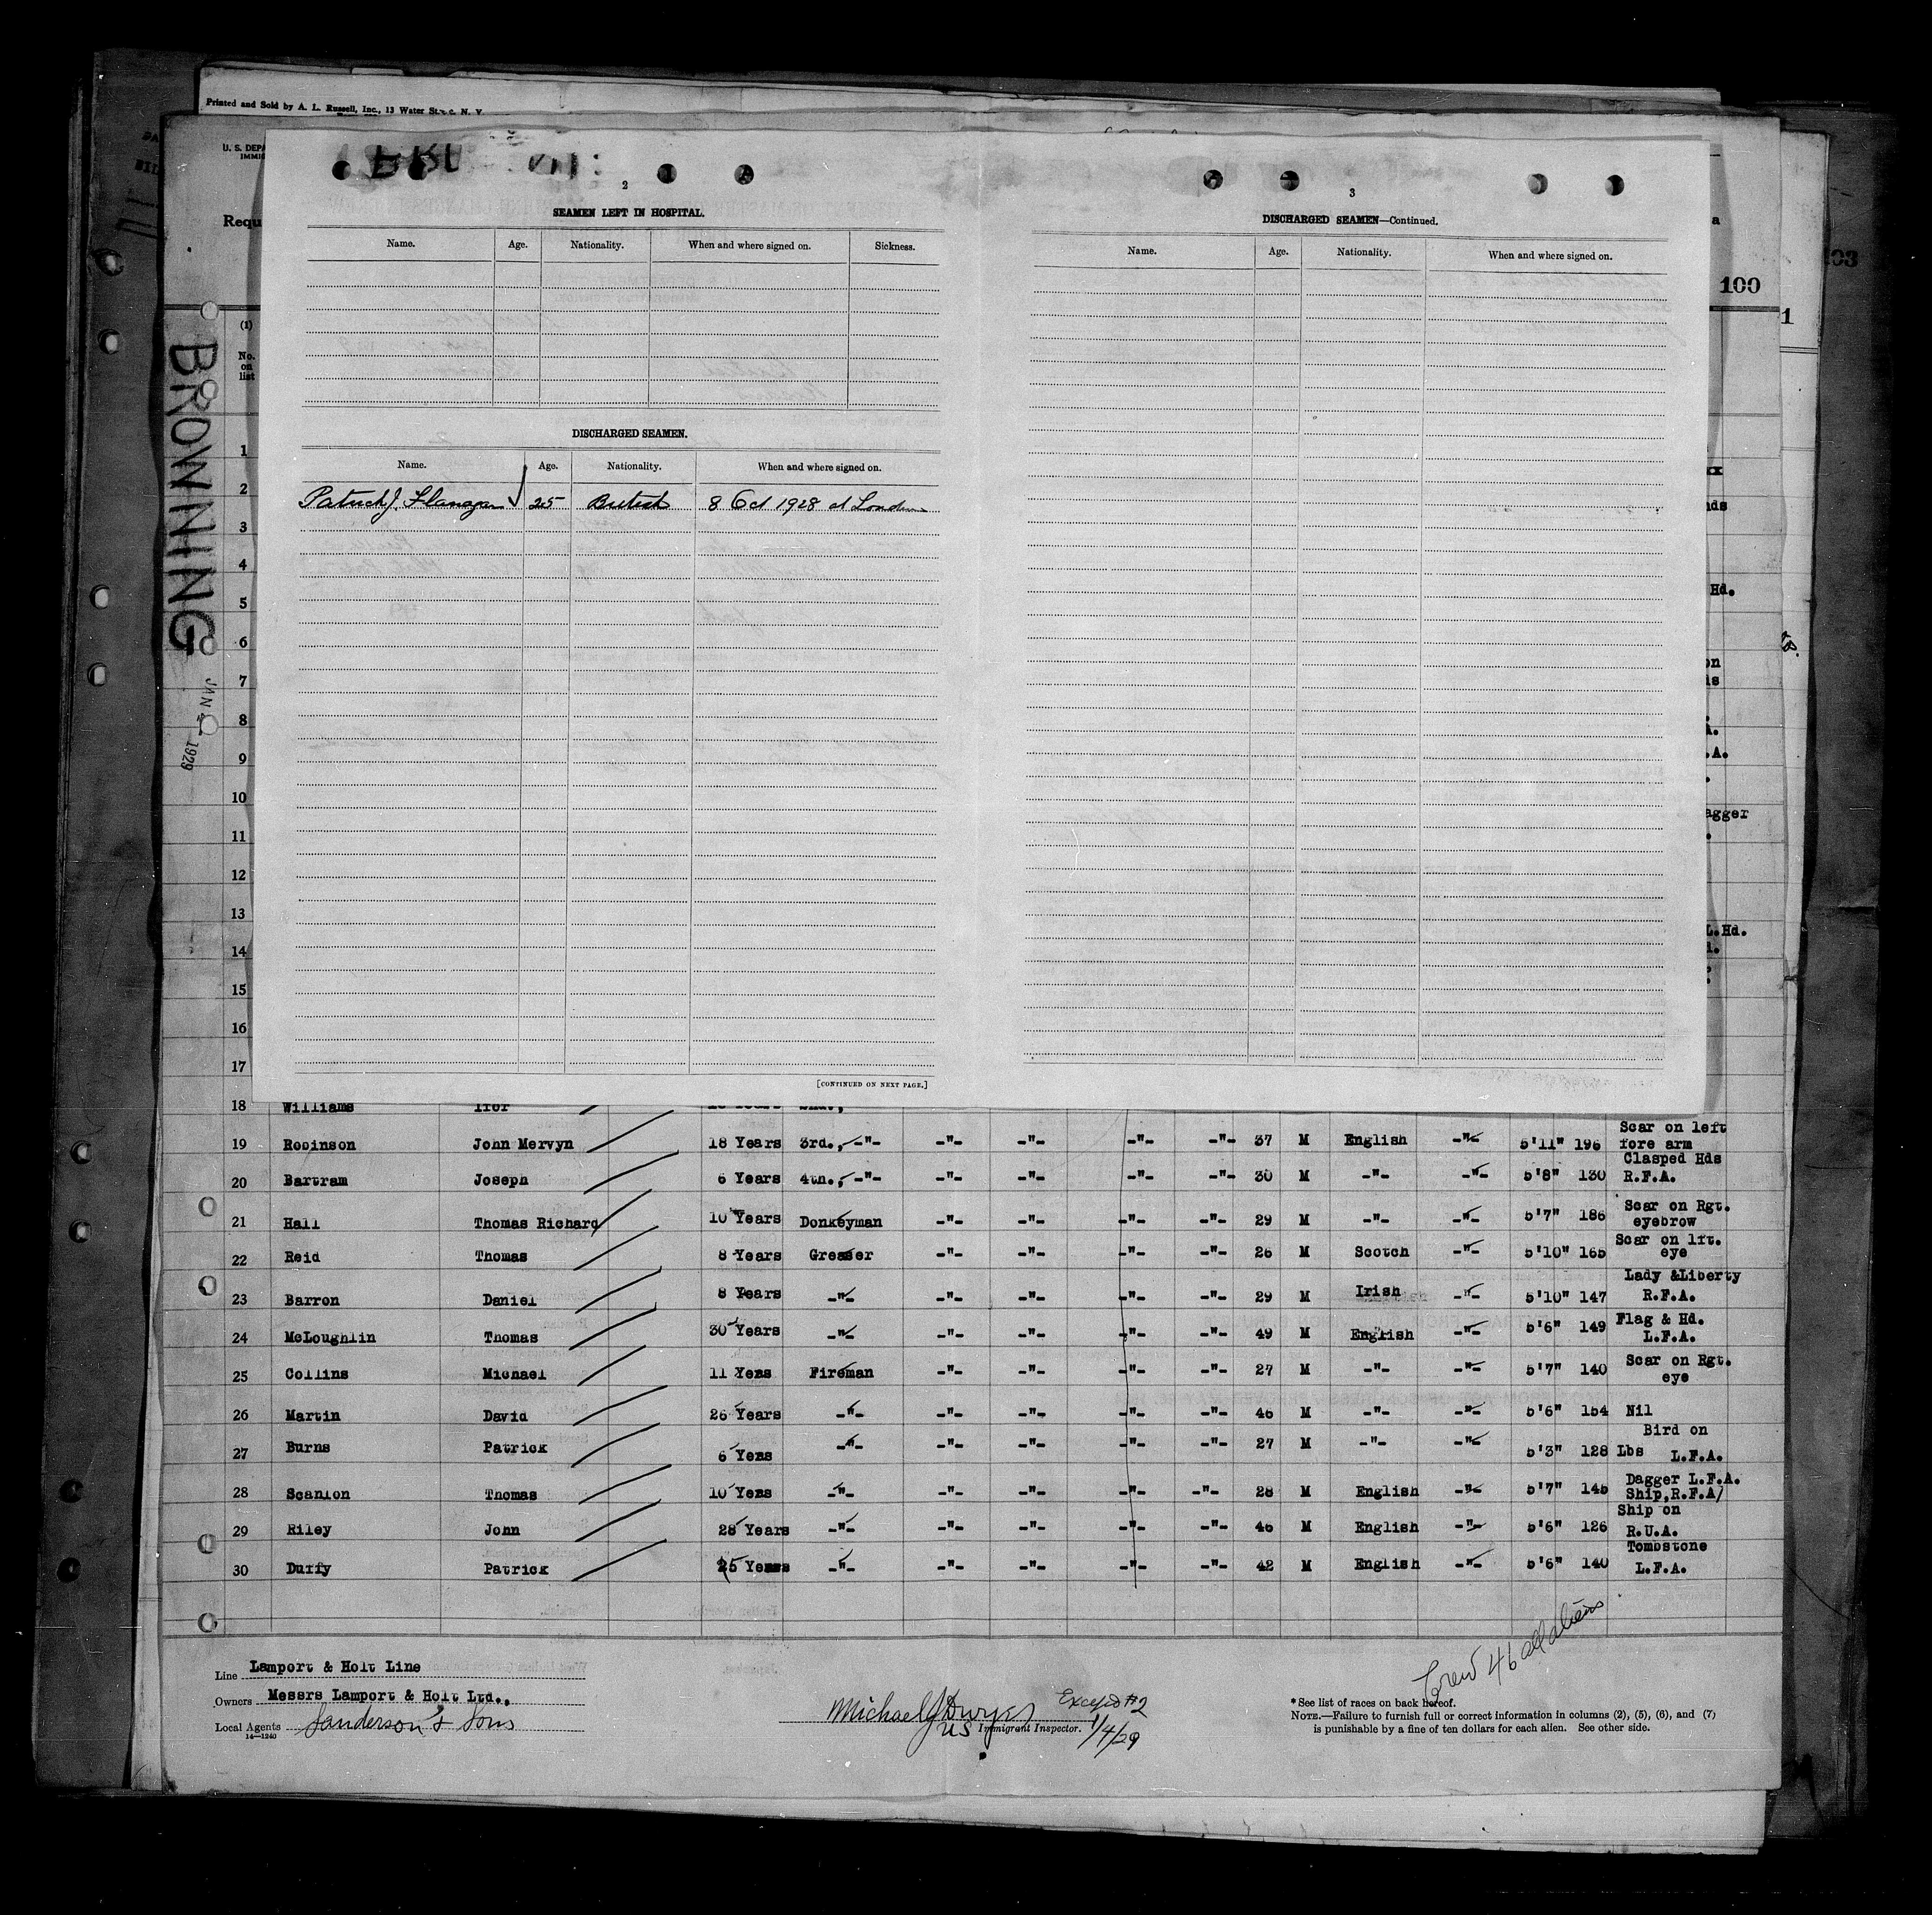 Printed and Sold by A. L. Russell, Inc., 13 Water St., N. Y.
U. S. DEPA
IMMIG
Requ
a
103
100
1
BROWNING
JAN 2 1929
2
SEAMEN LEFT IN HOSPITAL.
Name. Age. Nationality. When and where signed on. Sickness.
DISCHARGED SEAMEN.
Name. Age. Nationality. When and where signed on.
Patrick J. Flanagan 25 British 8 Oct 1928 at London
[CONTINUED ON NEXT PAGE.]
3
DISCHARGED SEAMEN—Continued.
Name. Age. Nationality. When and where signed on.
(1)
No.
on
list
1
2
nds
3
4
5
Hd.
6
7
on
is
8
A.
9
.A.
10
agger
11
12
13
14
L.Hd.
15
16
17
18 Williams Ifor
19 Robinson John Mervyn 18 Years 3rd., -"- -"- -"- -"- -"- 37 M English -"- 5'11" 196 Scar on left fore arm
20 Bartram Joseph 6 Years 4th., -"- -"- -"- -"- -"- 30 M -"- -"- 5'8" 130 Clasped Hds R.F.A.
21 Hall Thomas Richard 10 Years Donkeyman -"- -"- -"- -"- 29 M -"- -"- 5'7" 186 Scar on Rgt. eyebrow
22 Reid Thomas 8 Years Greaser -"- -"- -"- -"- 26 M Scotch -"- 5'10" 165 Scar on lft. eye
23 Barron Daniel 8 Years -"- -"- -"- -"- -"- 29 M Irish -"- 5'10" 147 Lady &Liberty R.F.A.
24 McLoughlin Thomas 30 Years -"- -"- -"- -"- -"- 49 M English -"- 5'6" 149 Flag & Hd. L.F.A.
25 Collins Michael 11 Yers Fireman -"- -"- -"- -"- 27 M -"- -"- 5'7" 140 Scar on Rgt. eye
26 Martin David 26 Years -"- -"- -"- -"- -"- 46 M -"- -"- 5'6" 154 Nil
27 Burns Patrick 6 Yers -"- -"- -"- -"- -"- 27 M -"- -"- 5'3" 128 Lbs Bird on L.F.A.
28 Scanlon Thomas 10 Yers -"- -"- -"- -"- -"- 28 M English -"- 5'7" 145 Dagger L.F.A. Ship,R.F.A/
29 Riley John 28 Years -"- -"- -"- -"- -"- 46 M English -"- 5'6" 126 Ship on R.U.A.
30 Duffy Patrick 25 Years -"- -"- -"- -"- -"- 42 M English -"- 5'6" 140 Tombstone L.F.A.
Crew 46 all aliens
Line Lamport & Holt Line
Owners Messrs Lamport & Holt Ltd.,
Local Agents Sanderson & Sons
14—1240
Michael J Dwyer Except #2
US Immigrant Inspector. 1/4/29
* See list of races on back hereof.
NOTE.—Failure to furnish full or correct information in columns (2), (5), (6), and (7)
is punishable by a fine of ten dollars for each alien. See other side.